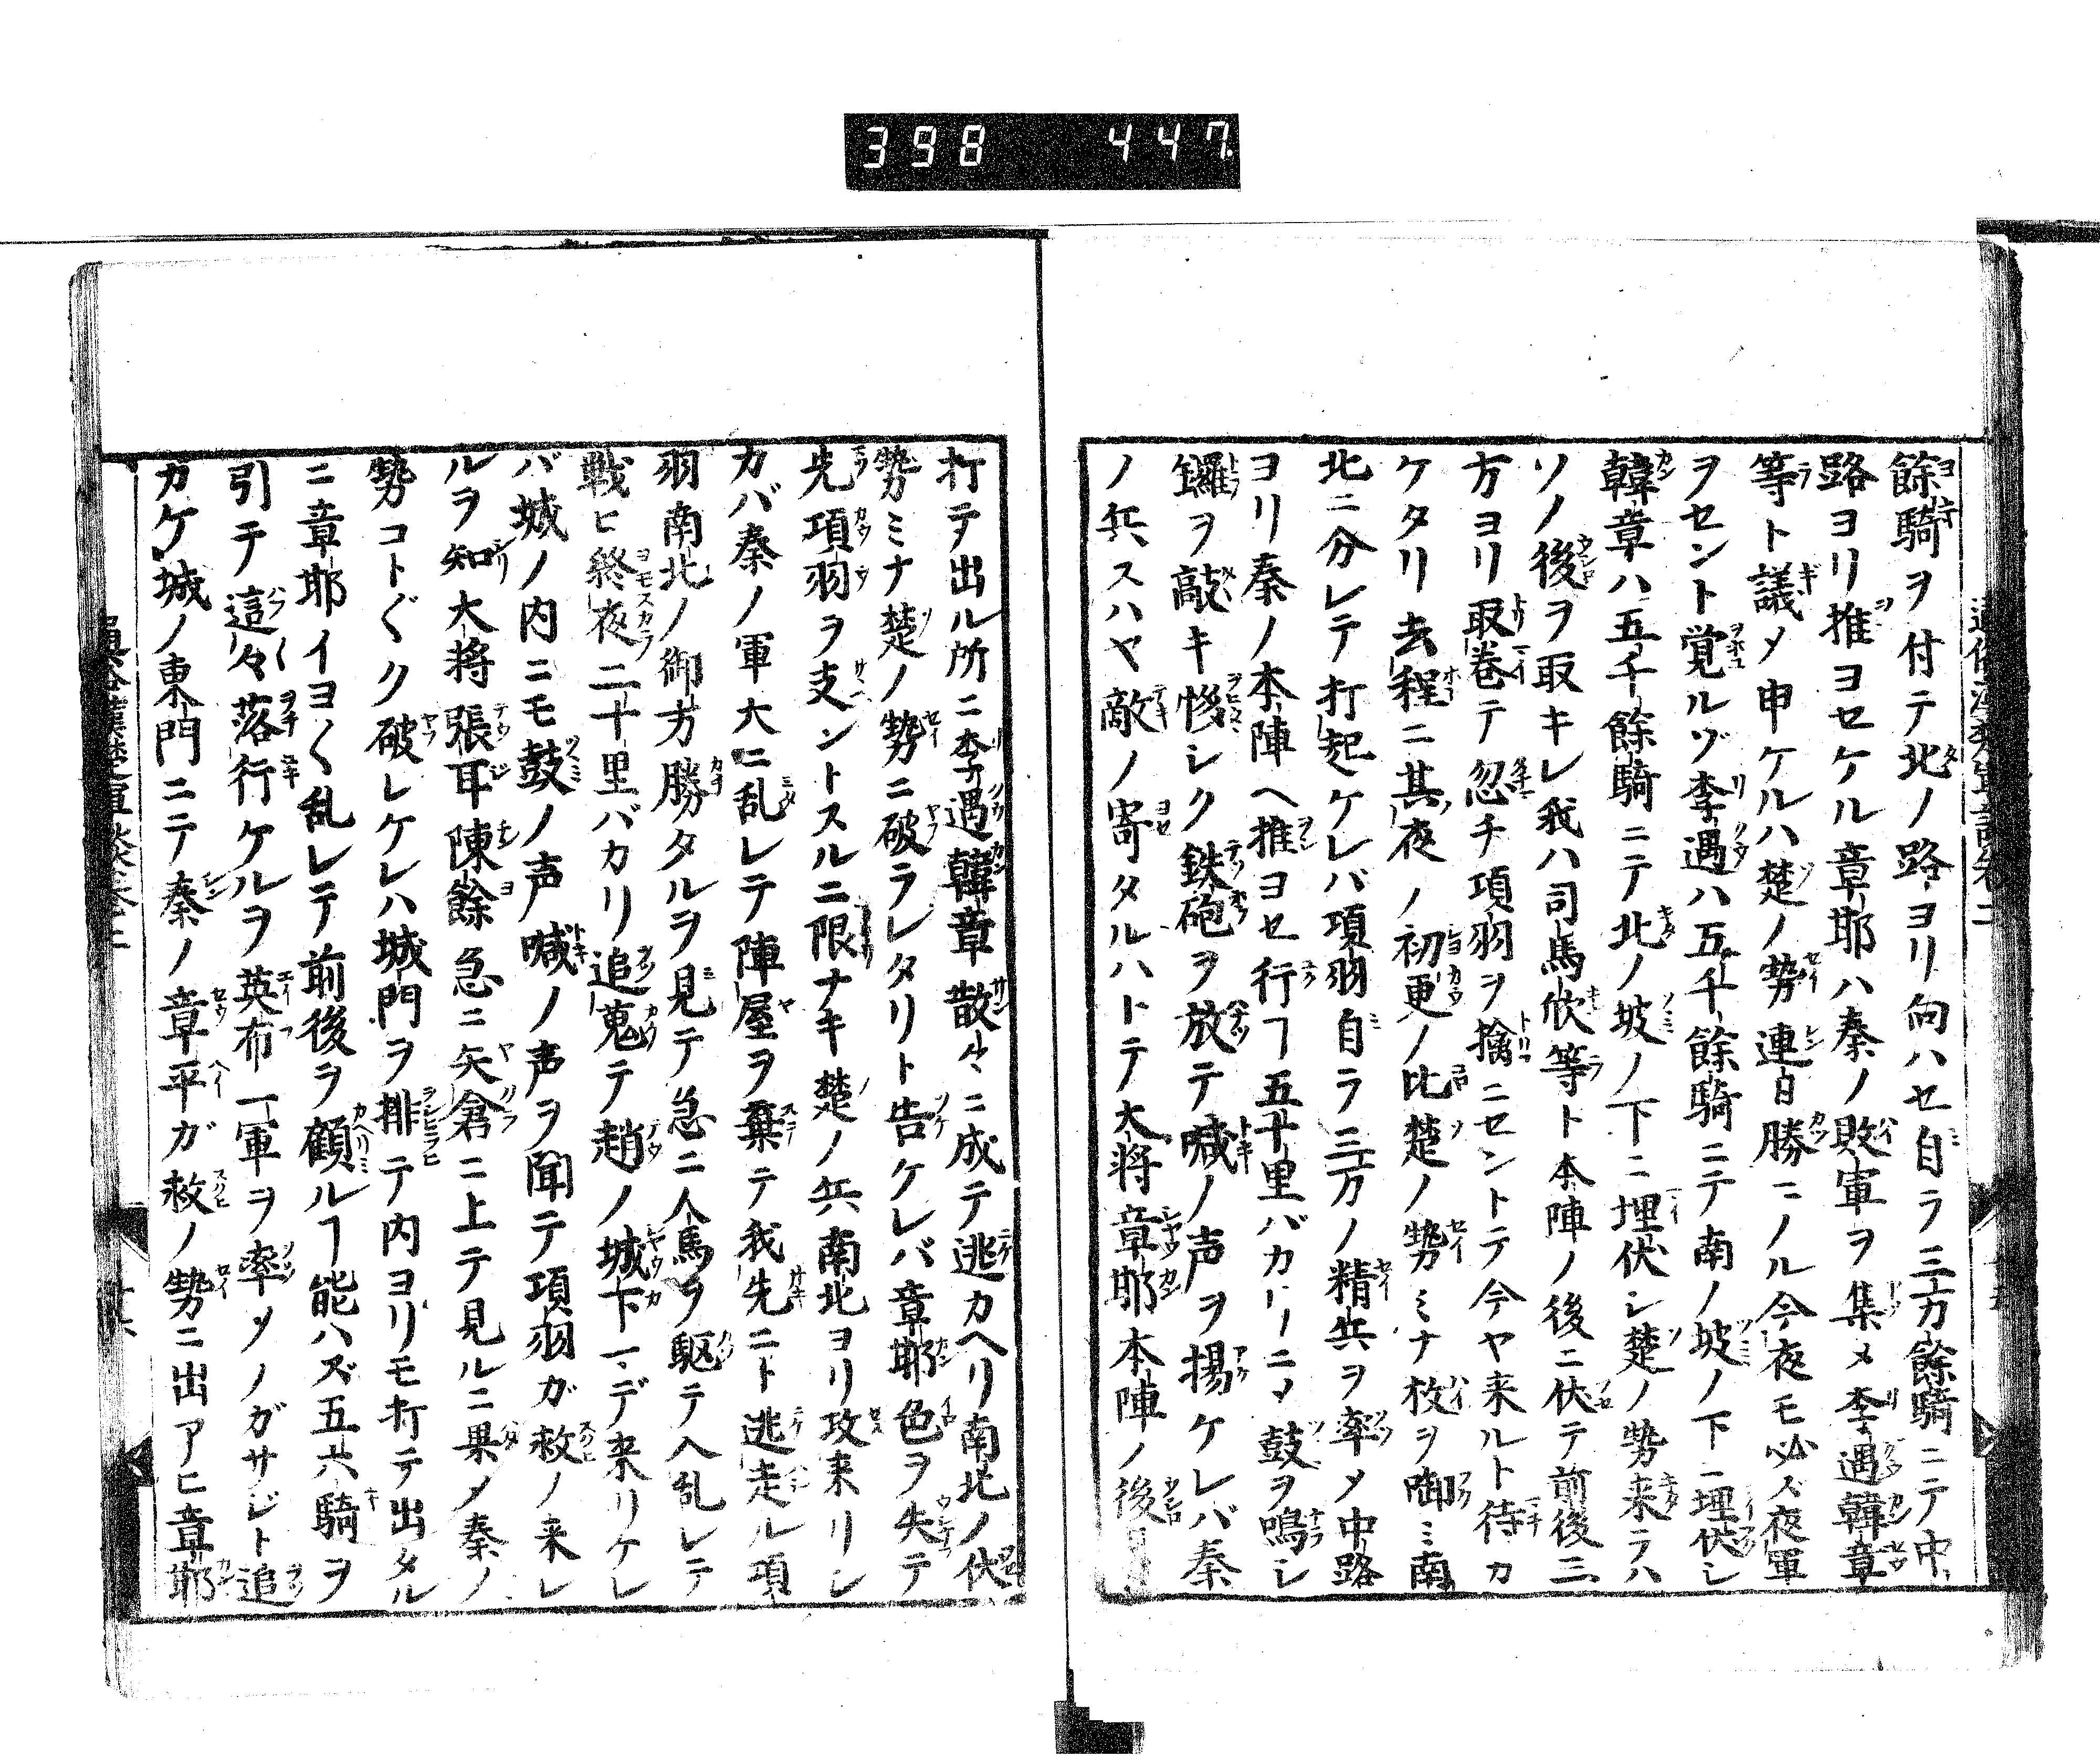 398 447
餘騎ヲ付テ北ノ路ヨリ向ハセ自ラ三万餘騎ニテ中
路ヨリ推ヨセケル章耶ハ秦ノ敗軍ヲ集メ李遇韓章
等ト議メ申ケルハ楚ノ勢連日勝ニノル今夜モ必ズ夜軍
ヲセント覚ルゾ李遇ハ五千餘騎ニテ南ノ坡ノ下ニ埋伏シ
韓章ハ五千餘騎ニテ北ノ坡ノ下ニ埋伏シ楚ノ勢来ラハ
ソノ後ヲ取キレ我ハ司馬欣等ト本陣ノ後ニ伏テ前後三
方ヨリ取巻テ忽チ項羽ヲ擒ニセントテ今ヤ来ルト待カ
ケタリ去程ニ其夜ノ初更ノ比楚ノ勢ミナ枚ヲ啣ミ南
北ニ分レテ打起ケレバ項羽自ラ三万ノ精兵ヲ率メ中路
ヨリ秦ノ本陣ヘ推ヨセ行ヿ五十里バカリニメ鼓ヲ鳴シ
鑼ヲ敲キ夥シク鉄砲ヲ放テ喊ノ声ヲ揚ケレバ秦
ノ兵スハヤ敵ノ寄タルハトテ大将章耶本陣ノ後
打テ出ル所ニ李遇韓章散々ニ成テ逃カヘリ南北ノ伏
勢ミナ楚ノ勢ニ破ラレタリト告ケレバ章耶色ヲ失テ
先項羽ヲ支ントスルニ限ナキ楚ノ兵南北ヨリ攻来リシ
カバ秦ノ軍大ニ乱レテ陣屋ヲ棄テ我先ニト逃走ル項
羽南北ノ御方勝タルヲ見テ急ニ人馬ヲ駆テ入乱レテ
戦ヒ終夜二十里バカリ追蒐テ趙ノ城下マデ来リケレ
バ城ノ内ニモ鼓ノ声喊ノ声ヲ聞テ項羽ガ救ノ来レ
ルヲ知大将張耳陳餘急ニ矢倉ニ上テ見ルニ果メ秦ノ
勢コトゞク破レケレハ城門ヲ排テ内ヨリモ打テ出タル
ニ章耶イヨ〱乱レテ前後ヲ顧ルヿ能ハズ五六騎ヲ
引テ這々落行ケルヲ英布一軍ヲ率メノガサジト追
カケ城ノ東門ニテ秦ノ章平ガ救ノ勢ニ出アヒ章耶